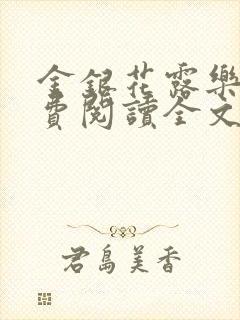 金銀花露樂
費閱讀全文
君島美香